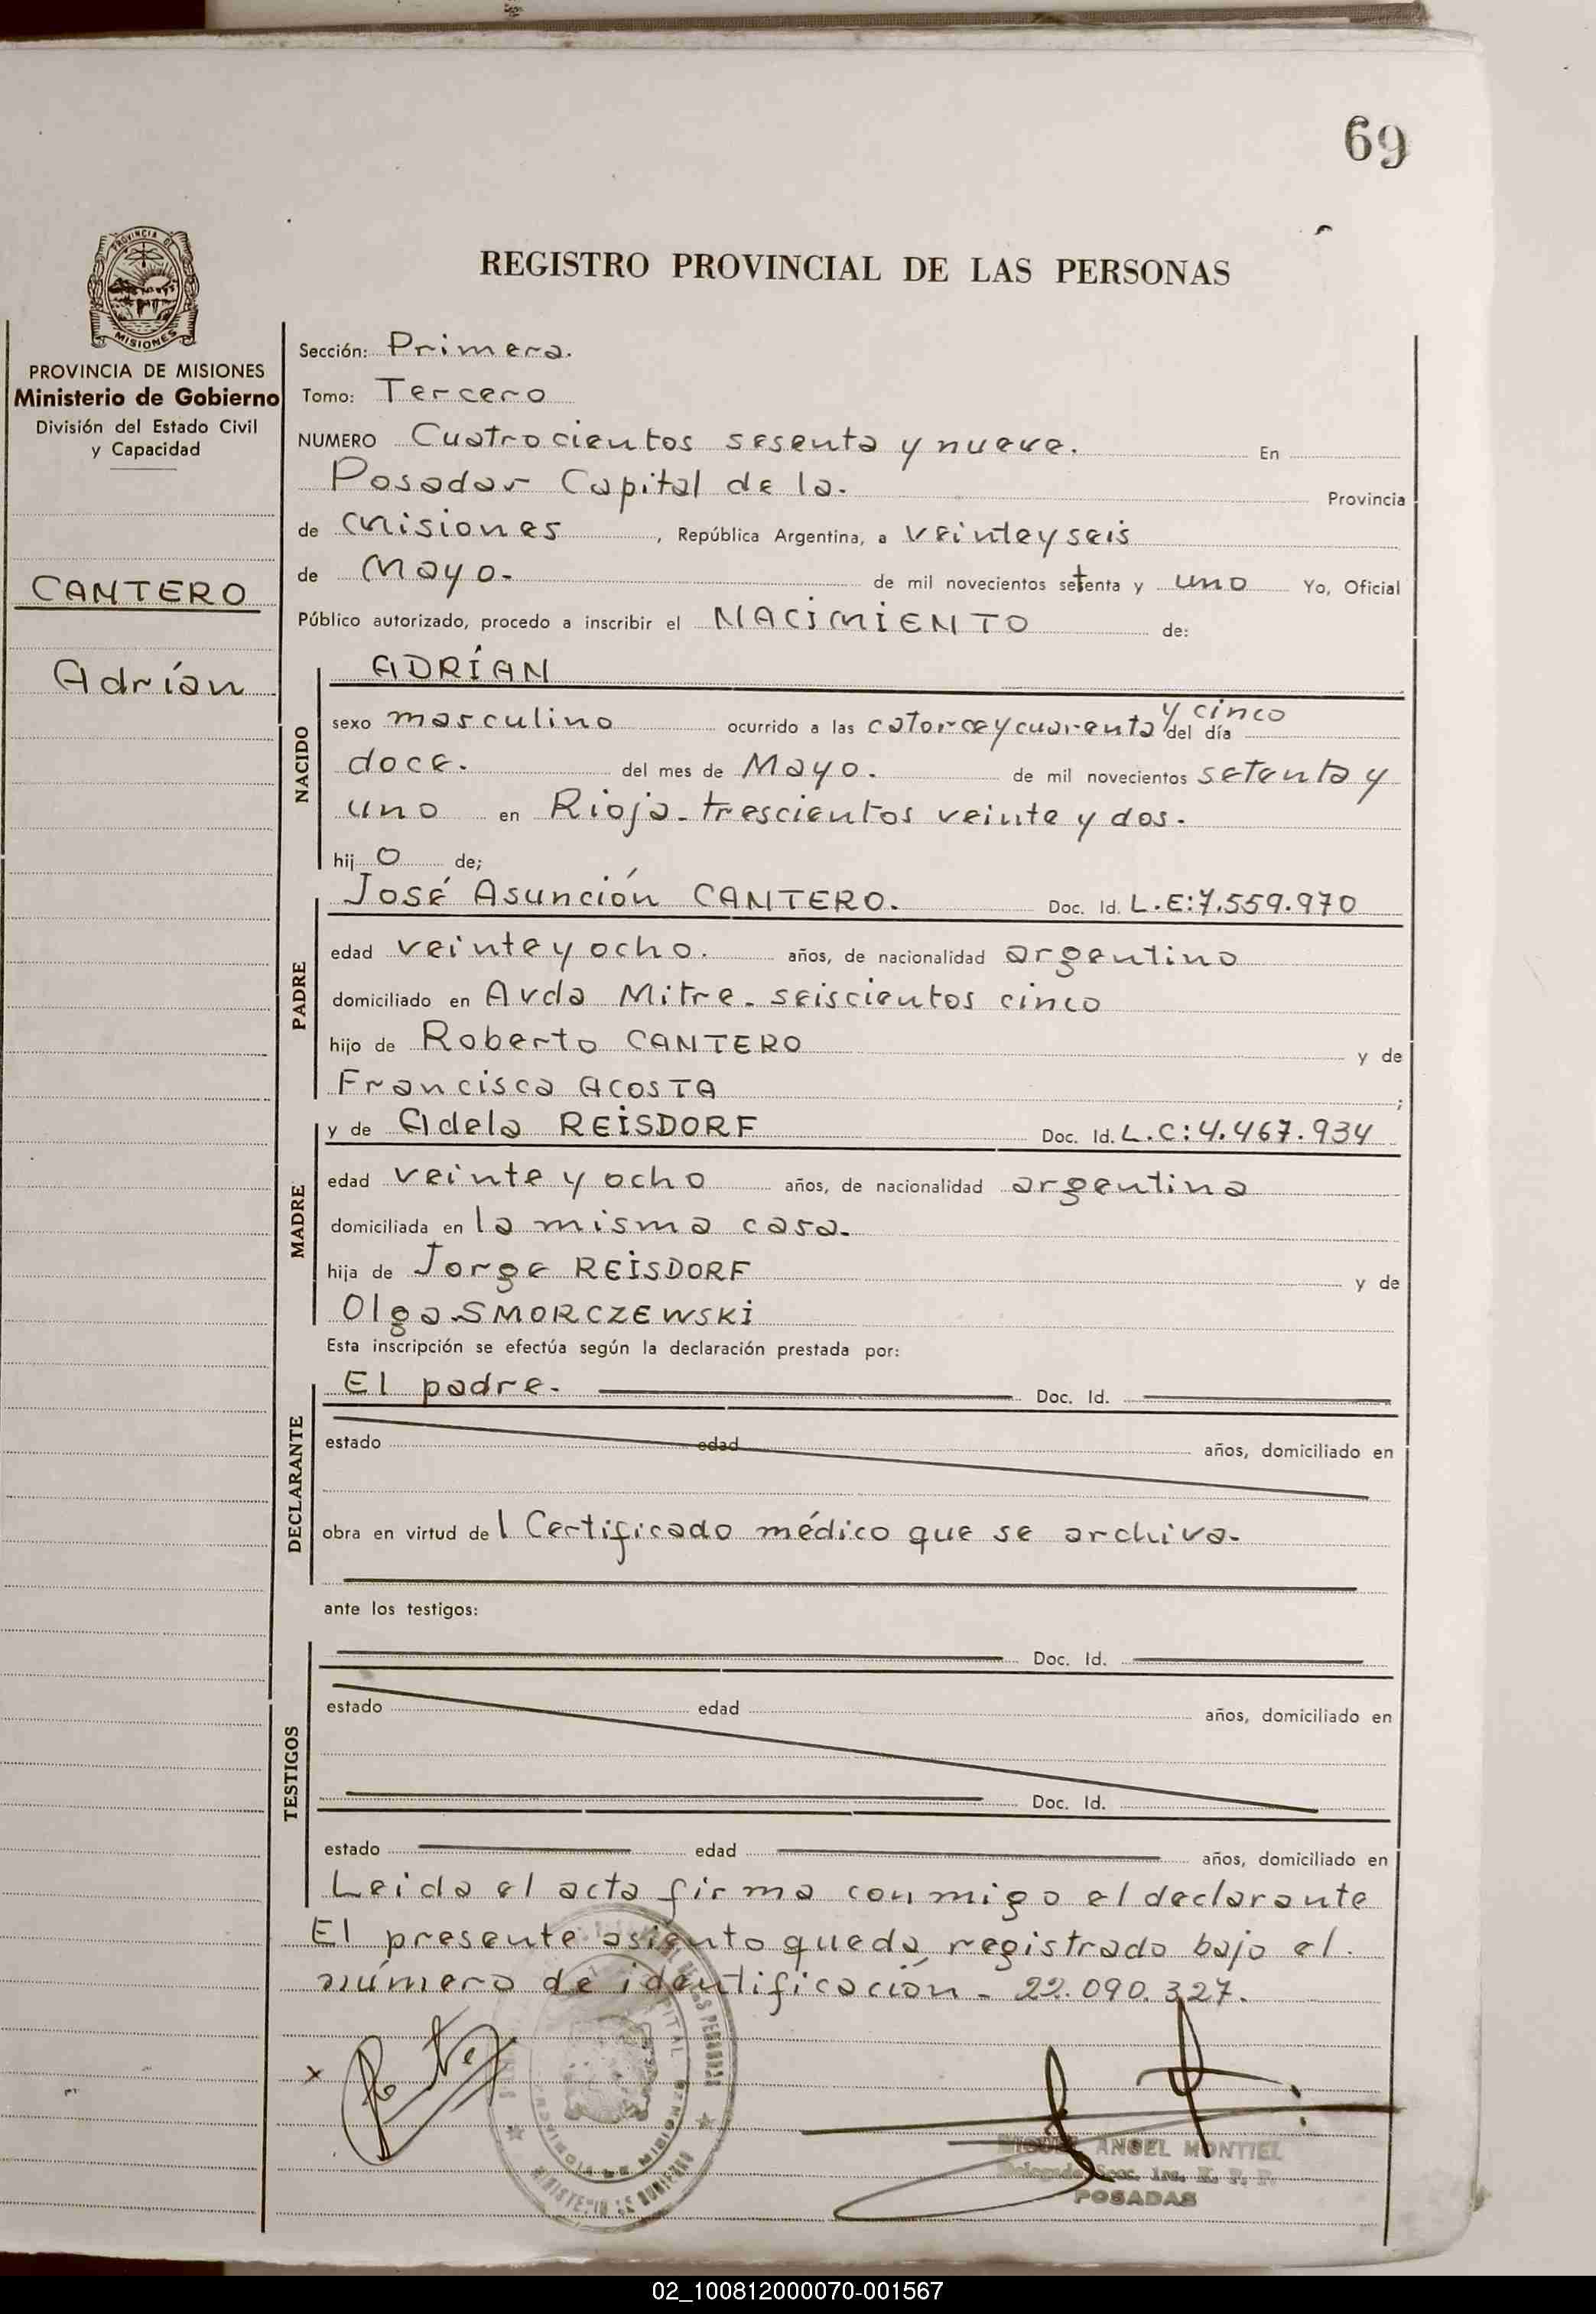 69
PROVINCIA DE
MISIONES
PROVINCIA DE MISIONES
Ministerio de Gobierno
División del Estado Civil
y Capacidad
CANTERO
Adrían
REGISTRO PROVINCIAL DE LAS PERSONAS
Sección: Primera.
Tomo: Tercero
NUMERO Cuatrocientos sesenta y nueve. En
Posadas Capital de la. Provincia
de Misiones, República Argentina, a veinteyseis
de Mayo- de mil novecientos setenta y uno Yo, Oficial
Público autorizado, procedo a inscribir el NACIMIENTO de:
NACIDO
ADRÍAN
sexo masculino ocurrido a las catorce y cuarenta y cinco del día
doce. del mes de Mayo. de mil novecientos setenta y
uno en Rioja- trescientos veinte y dos.
hij o de;
PADRE
José Asunción CANTERO. Doc. Id. L.E:7.559.970
edad veinte y ocho. años, de nacionalidad argentino
domiciliado en Avda Mitre- seiscientos cinco
hijo de Roberto CANTERO y de
Francisca ACOSTA;
MADRE
y de Adela REISDORF Doc. Id. L.C:4.467.934
edad veinte y ocho años, de nacionalidad argentina
domiciliada en la misma casa-
hija de Jorge REISDORF y de
Olga SMORCZEWSKI
Esta inscripción se efectúa según la declaración prestada por:
DECLARANTE
El padre- Doc. Id.
estado edad años, domiciliado en
obra en virtud del Certificado médico que se archiva-
ante los testigos:
TESTIGOS
Doc. Id.
estado edad años, domiciliado en
Doc. Id.
estado edad años, domiciliado en
Leida el acta firma conmigo el declarante
El presente asiento queda registrado bajo el.
número de identificación- 22.090.327.
x
MIGUEL ANGEL MONTIEL
Delegado Secc. 1ra. R. P. P.
POSADAS
02_100812000070-001567